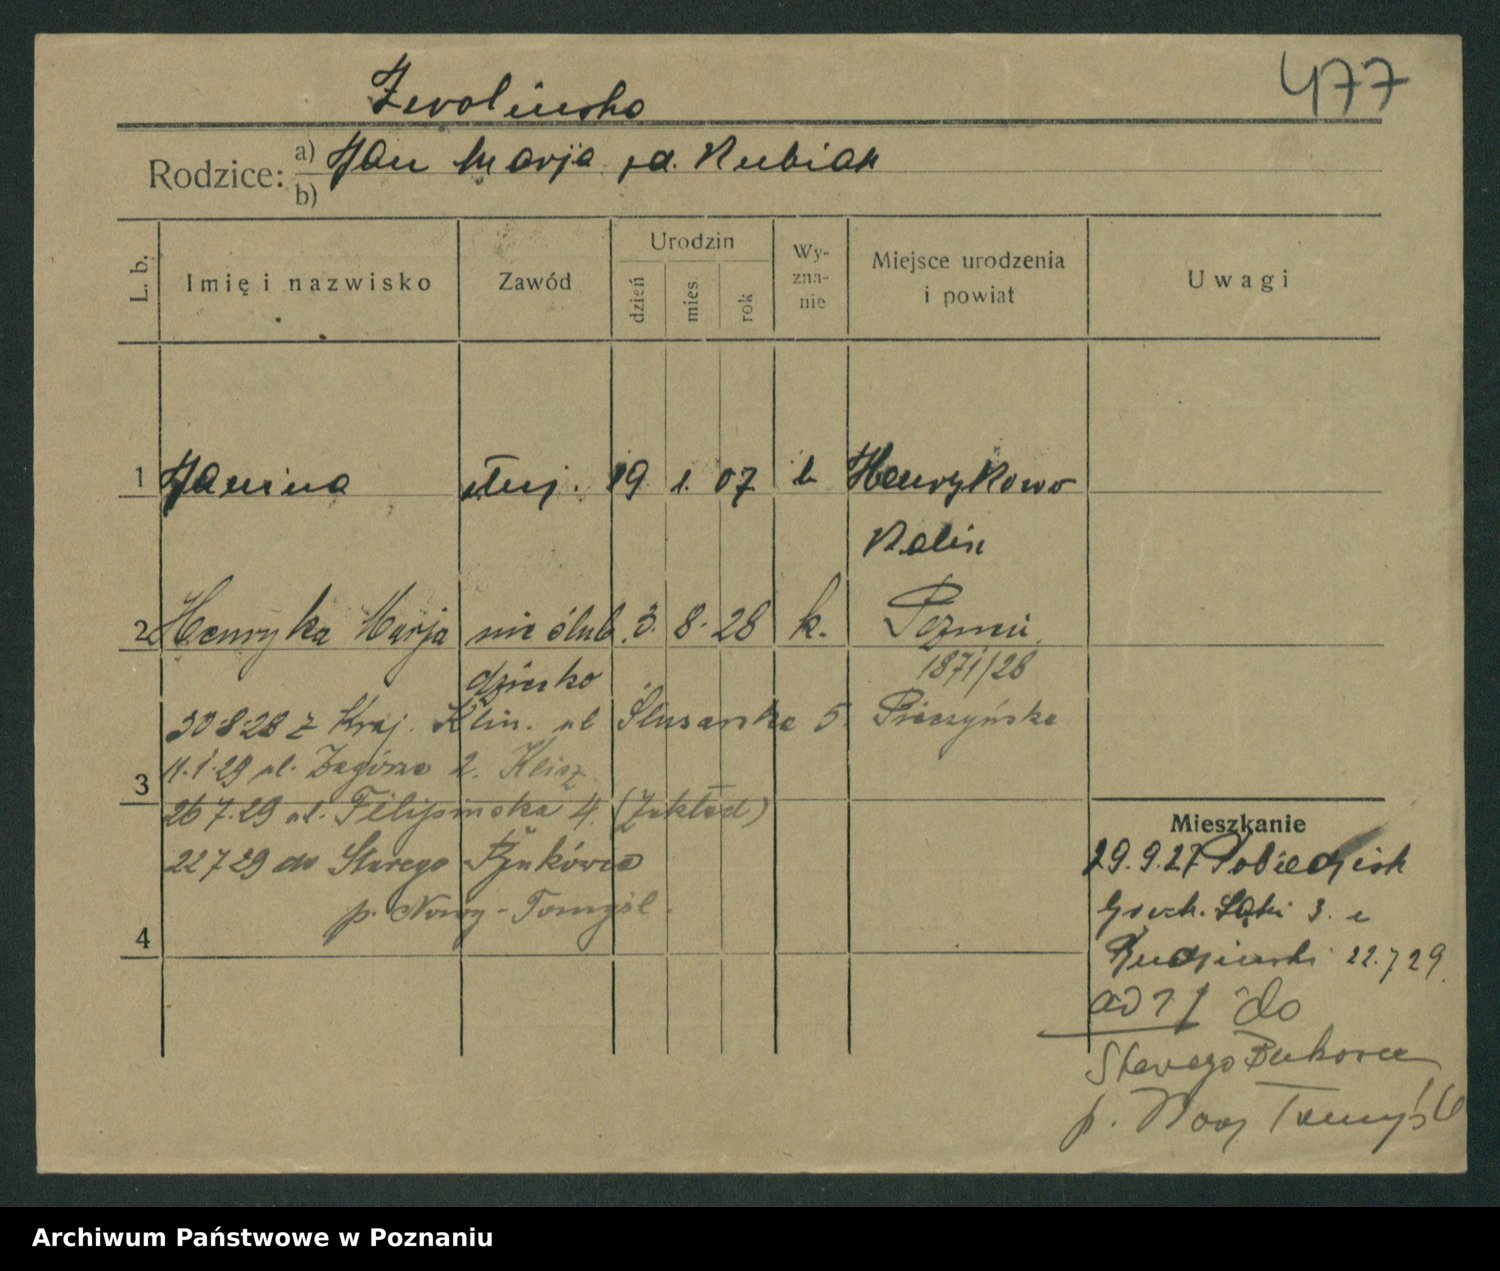 477
Zwolinska
Rodzice: a) Jan Marja z d. Kubiak
b)
L. b.
Imię i nazwisko
Zawód
Urodzin
dzień
mies.
rok
Wy-
zna-
nie
Miejsce urodzenia
i powiat
Uwagi
1 Janina służ. 19. 1. 07 k Henrykowo
2 Henryka Marja nie ślub. 3. 8. 28 k. Pozniń
1871/28
dziecko
30 8 28 z Kraj. Klin. ul Ślusarska 5.
11.1.29 ul. Zagórze 2.
3
26 7.29 ul. Filipinska 4. (Zakład)
22 7 29 do Starego
p. Nowy-Tomyśl.
4
Mieszkanie
29.9.27 Pobiedzisk
3. u
22.7 29
do
Starego Bukowca
p. Nowy Tomyśl
Archiwum Państwowe w Poznaniu